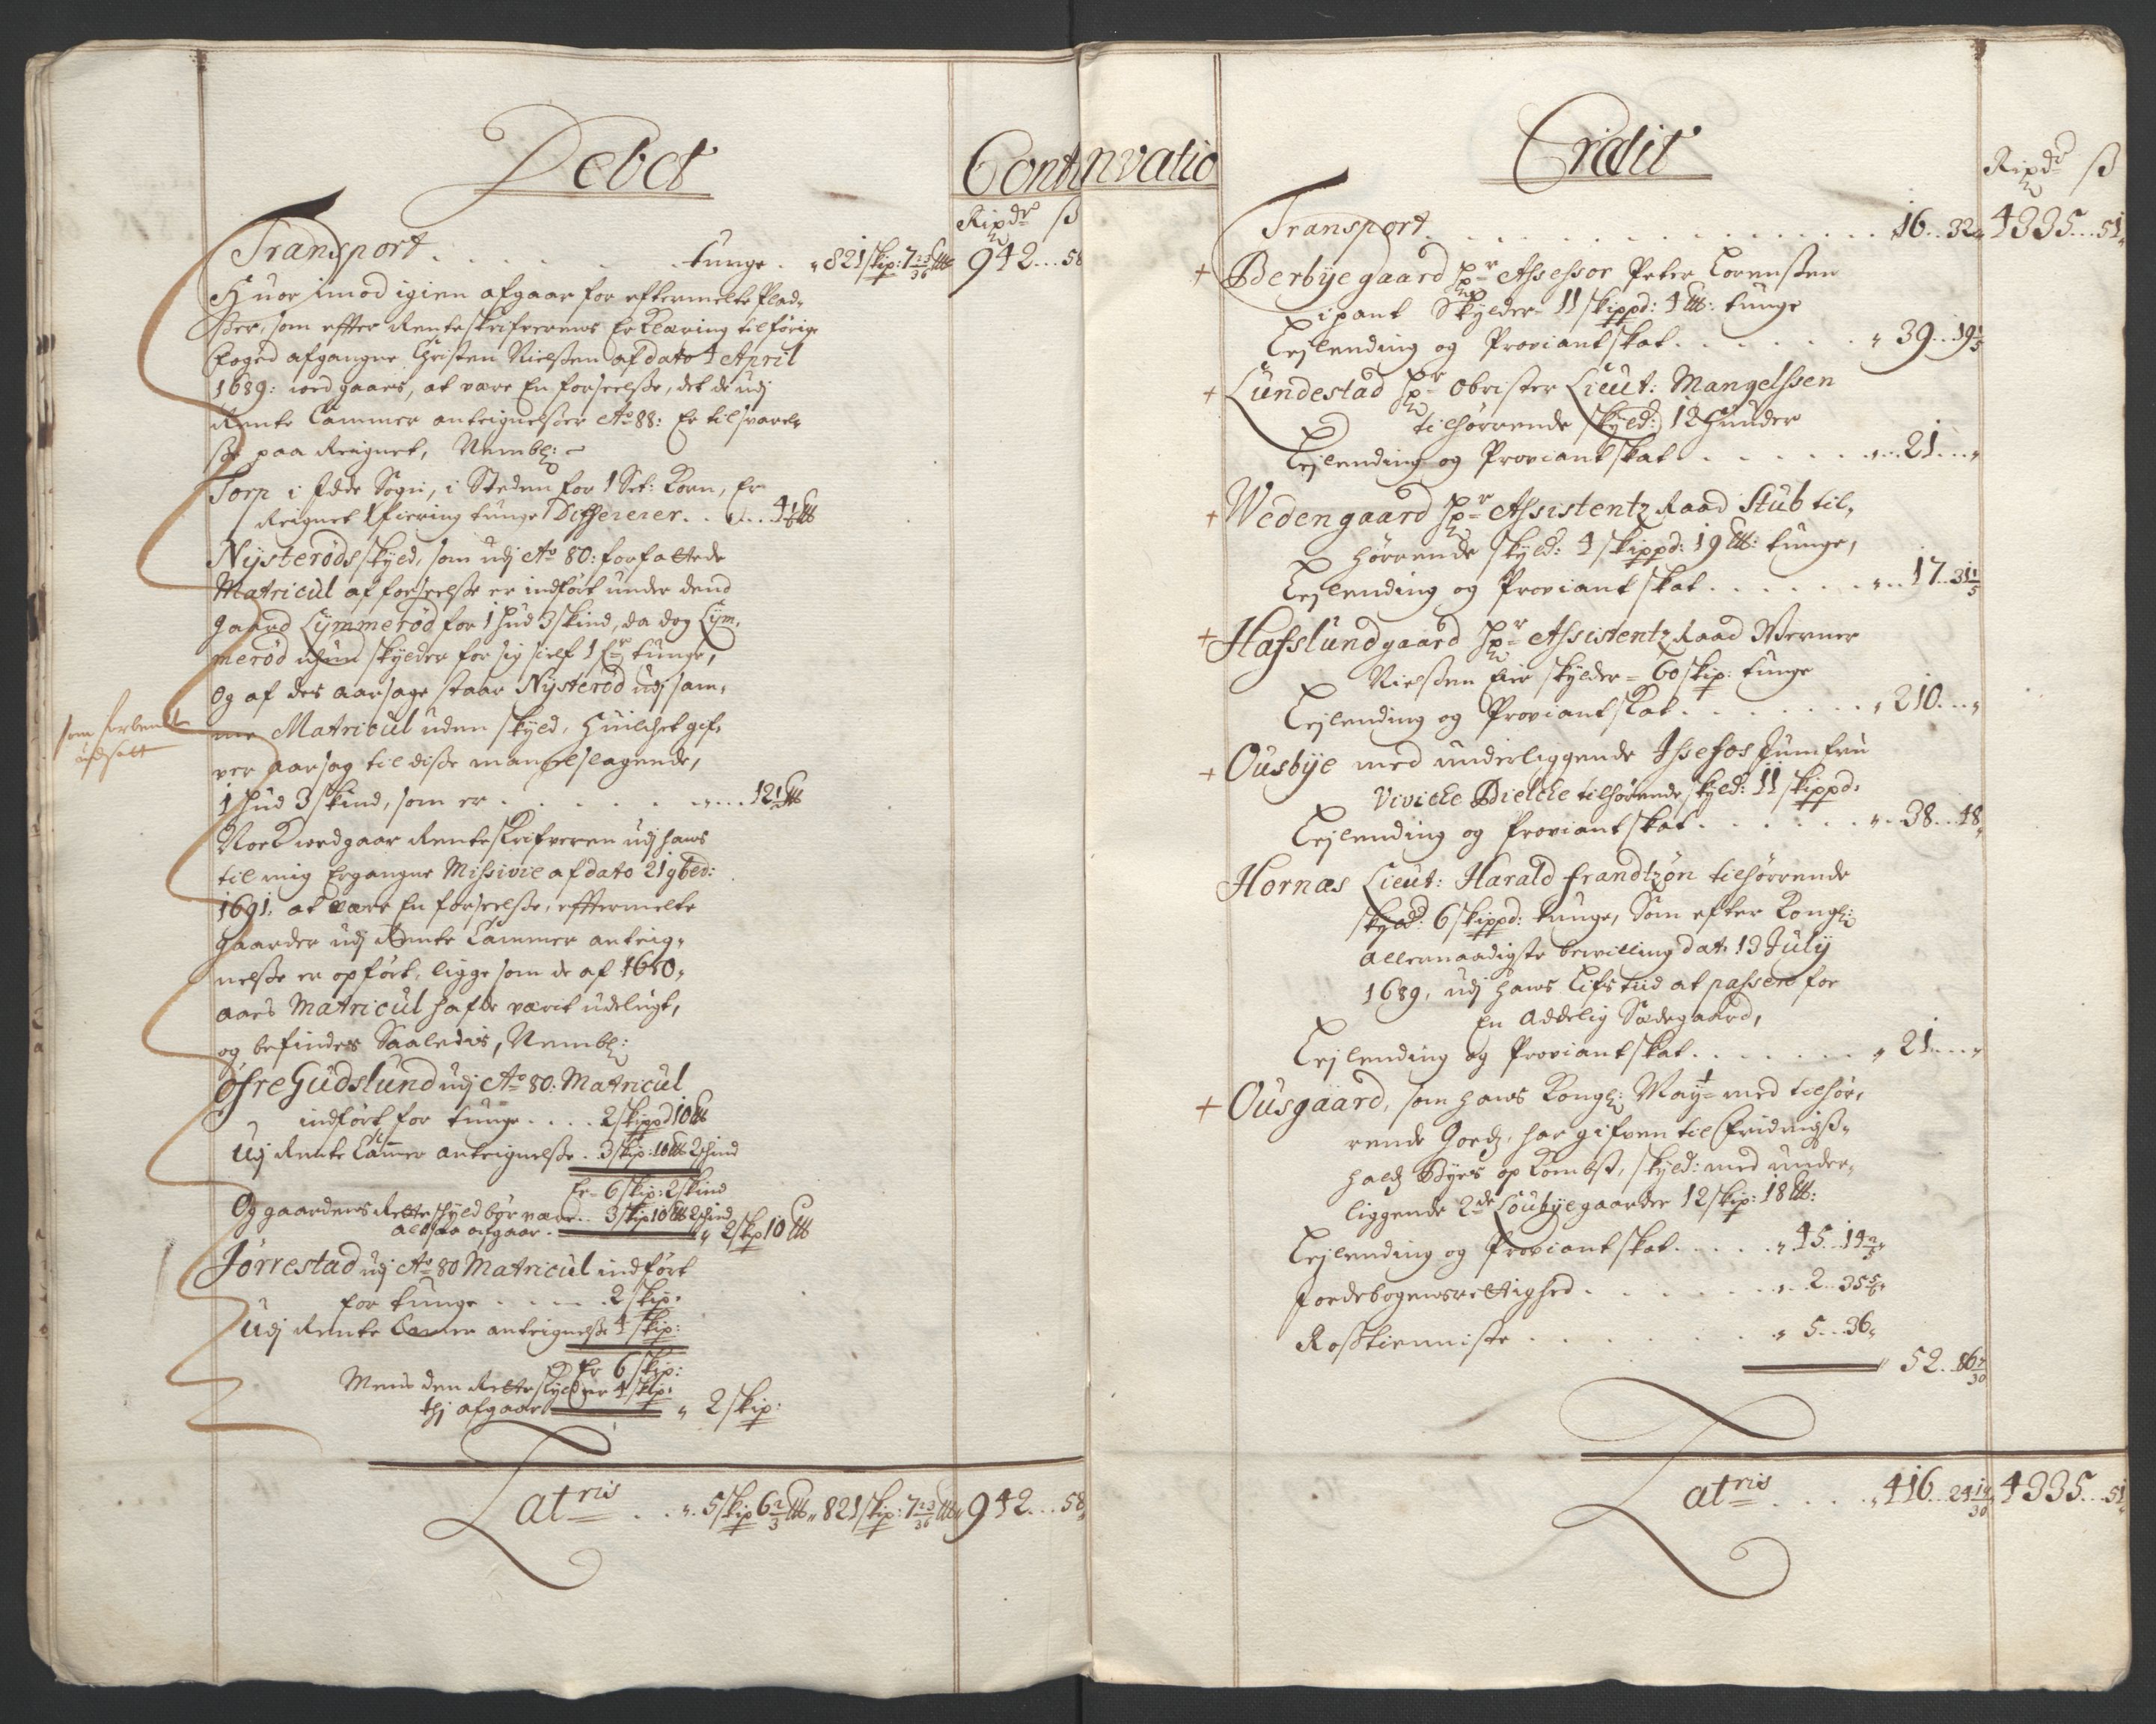 Debet
Continvatio
Ripdr ß
Transport . . . . . . tunge . „ 821 skip: 7 23/36 Lb 942 . . 58
Huor imod igien afgaar for eftermelte Plad-
ßer, som effter Renteskrifverens Erklæring til forige
foged afgangne Christen Nielßen af dato 4 April
1689: wedgaars, at være En forseelße, det de udj
Rente Cammer antegnelßer Ao 88: Er til svarel-
ße paa Reignet, Nembl:
Torp i Idde Sogn, i Steden for 1 Set: Korn, Er
Reignet 1 fiering tunge Differerer . . . . 4 1/6 Lb
Nysterøds skyld, som udj Ao 80: forfattede
Matricul af forseelße er indført under dend
gaard Lymmerød for 1 hud 3 skind, da dog Lym-
merød Kun skylder for sig sielf 1 fr tunge,
Og af des aarsage staar Nysterød udj sam-
me Matricul uden skyld, Huilchet gif-
ver aarsag til diße manqvelslagende,
1 hud 3 skind, som er . . . . . . . 12 1/2 Lb
som forben
udsatt
Noch wedgaar Renteskrifveren udj hans
til mig Ergangne Missivie af dato 21 9bed:
1691, at være En forseelße, efftermelte
gaarder udj Rente Cammer anteig-
nelße er opført, ligge som de af 1680
aars Matricul hafde værit udelugt,
og befindes Saaledis, Nembl:
Øfre Gudslund udj Ao 80. Matricul
indført for tunge . . . . 2 skippd 10 Lb
Udj Rente Cammer anteignelße . 3 skip: 10 Lb 2 skind
Er 6 skip: 2 skind
Og gaardens Rette skyld bør være . . 3 skip 10 Lb 2 skind
altsaa afgaar . „ 2 skip 10 Lb
Jørrestad udj Ao 80 Matricul indført
for tunge . . . . . 2 skip:
Udj Rente Camer anteignelße 4 skip:
Er 6 skip:
Mens den Rette skyld er 4 skip:
thj afgaar „ 2 skip:
Latris . . „ 5 skip 6 2/3 Lb „ 821 skip: 7 23/36 Lb „ 942 . . 58
Credit
Ripdr ß
Transport . . . . . . . . . . 16 . . 32 „ 4335 . . 51
+ Berbye gaard Hr Assessor Peter Lorenßen
ipant Skylder 11 skippd: 4 Lb: tunge
Leylending og Proviantskat . . . . . . „ 39 . . 19 1/5
+ Lundestad Hr Obrister Lieut: Mangelßen
tilhørrende skyld: 12 Hunder
Leylending og Proviantskat . . . . . . „ 21 . . „
+ Wedengaard Hr Assistentz Raad Stub til-
hørrende skyld: 4 skippd: 19 Lb: tunge,
Leylending og Proviantskat . . . . . . „ 17 . . 31 1/5
+ Hafslundgaard Hr Assistentz Raad Werner
Nielßen Eier skylder = 60 skip: tunge
Leylending og Proviantskat . . . . . . „ 210 . . „
+ Ousbye med underliggende Issefos Jumfru
Vivicke Bielcke tilhørende skyld: 11 skippd:
Leylending og Proviantskat . . . . . . „ 38 . . 48
Hornæs Lieut: Harald frandtzøn tilhørrende
skyld: 6 skippd: tunge, Som efter Kongl:
allernaadigste bevilling dat: 13 July
1689, udj hans Lifs tiid at passere for
En Addelig Sædegaard,
Leylending og Proviantskat . . . . . . „ 21 . . „
+ Ousgaard, som hans Kongl: Mayt med tilhør-
rende Godz, har gifven til Fridrichs-
halds Byes opkombst, skyld: med under-
liggende 2de Loubyegaarder 12 skip: 18 Lb:
Leylending og Proviantskat . . . . „ 45 . . 14 2/5
foedebogensrettighed . . . . . „ 2 . . 35 5/6
Rostienniste . . . . . . . „ 5 . . 36 „
„ 52 . . 86 7/30
Latris . . . . „ 416 . . 24 19/30 4335 . . 51